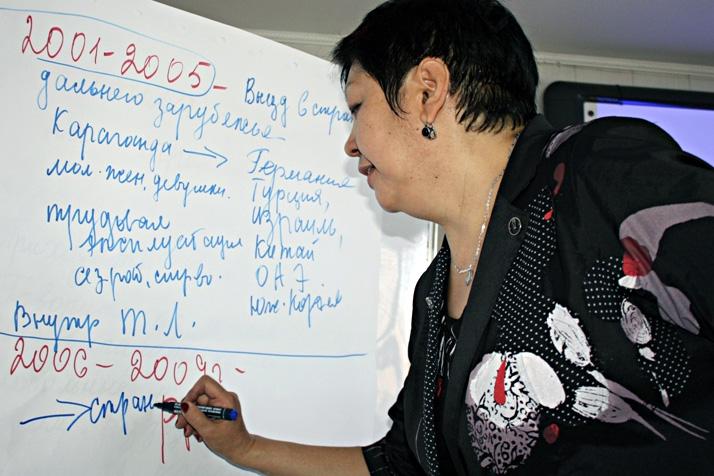 2001-2005 - Выезд в стра
дальнего зарубежья
Караганда → Германия
мол. жен, девушки. Турция,
трудовая Израиль,
эксплуатация Китай
с/з рот, стр-во. ОАЭ
Юж. Корея
Внутр Т.Л.
2006-2009г -
→ стран